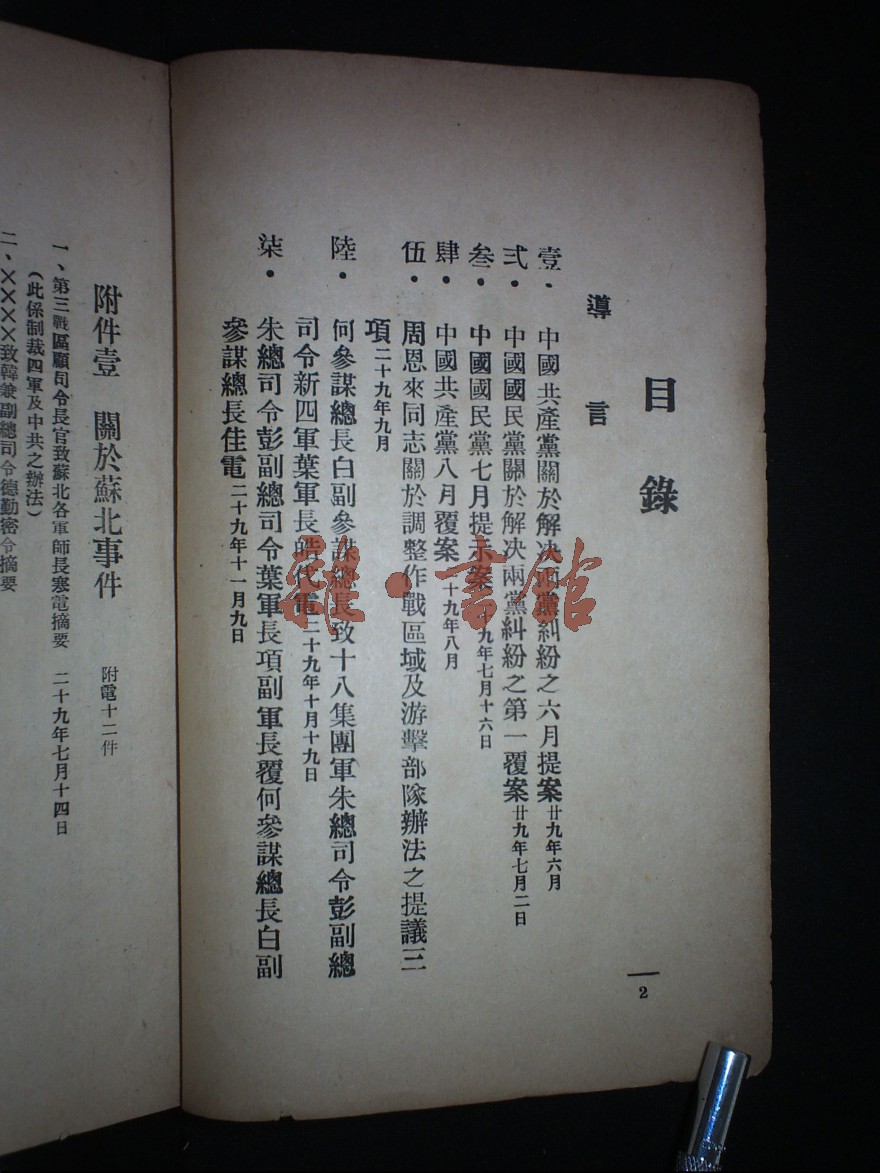 目錄
導言
壹．中國共產黨關於解决兩黨糾紛之六月提案 廿九年六月
弍．中國國民黨關於解决兩黨糾紛之第一覆案 廿九年七月二日
叁．中國國民黨七月提示案 十九年七月十六日
肆．中國共產黨八月覆案 十九年八月
伍．周恩來同志關於調整作戰區域及游擊部隊辦法之提議三
項 二十九年九月
陸．何參謀總長白副參謀總長致十八集團軍朱總司令彭副總
司令新四軍葉軍長皓代電 二十九年十月十九日
柒．朱總司令彭副總司令葉軍長項副軍長覆何參謀總長白副
參謀總長佳電 二十九年十一月九日
2
附件壹 關於蘇北事件 附電十二件
一、第三戰區顧司令長官致蘇北各軍師長寒電摘要 二十九年七月十四日
（此係制裁四軍及中共之辦法）
二、××××致韓兼副總司令德勤密令摘要
雜·書館